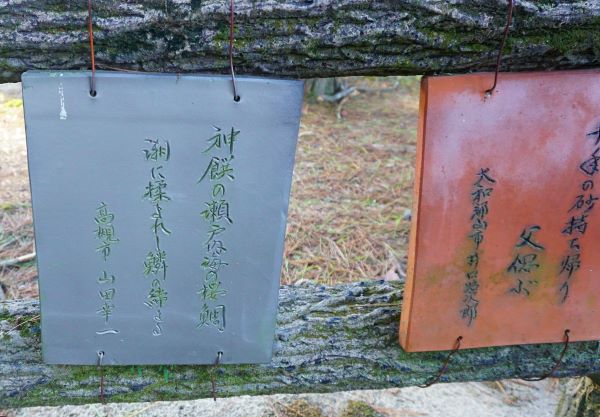 神饌の瀬戸内海の桜鯛
潮に揉まれし鱗の締まる
高槻市 山田幸一
年の砂持ち帰り
父偲ぶ
大和郡山市 井口